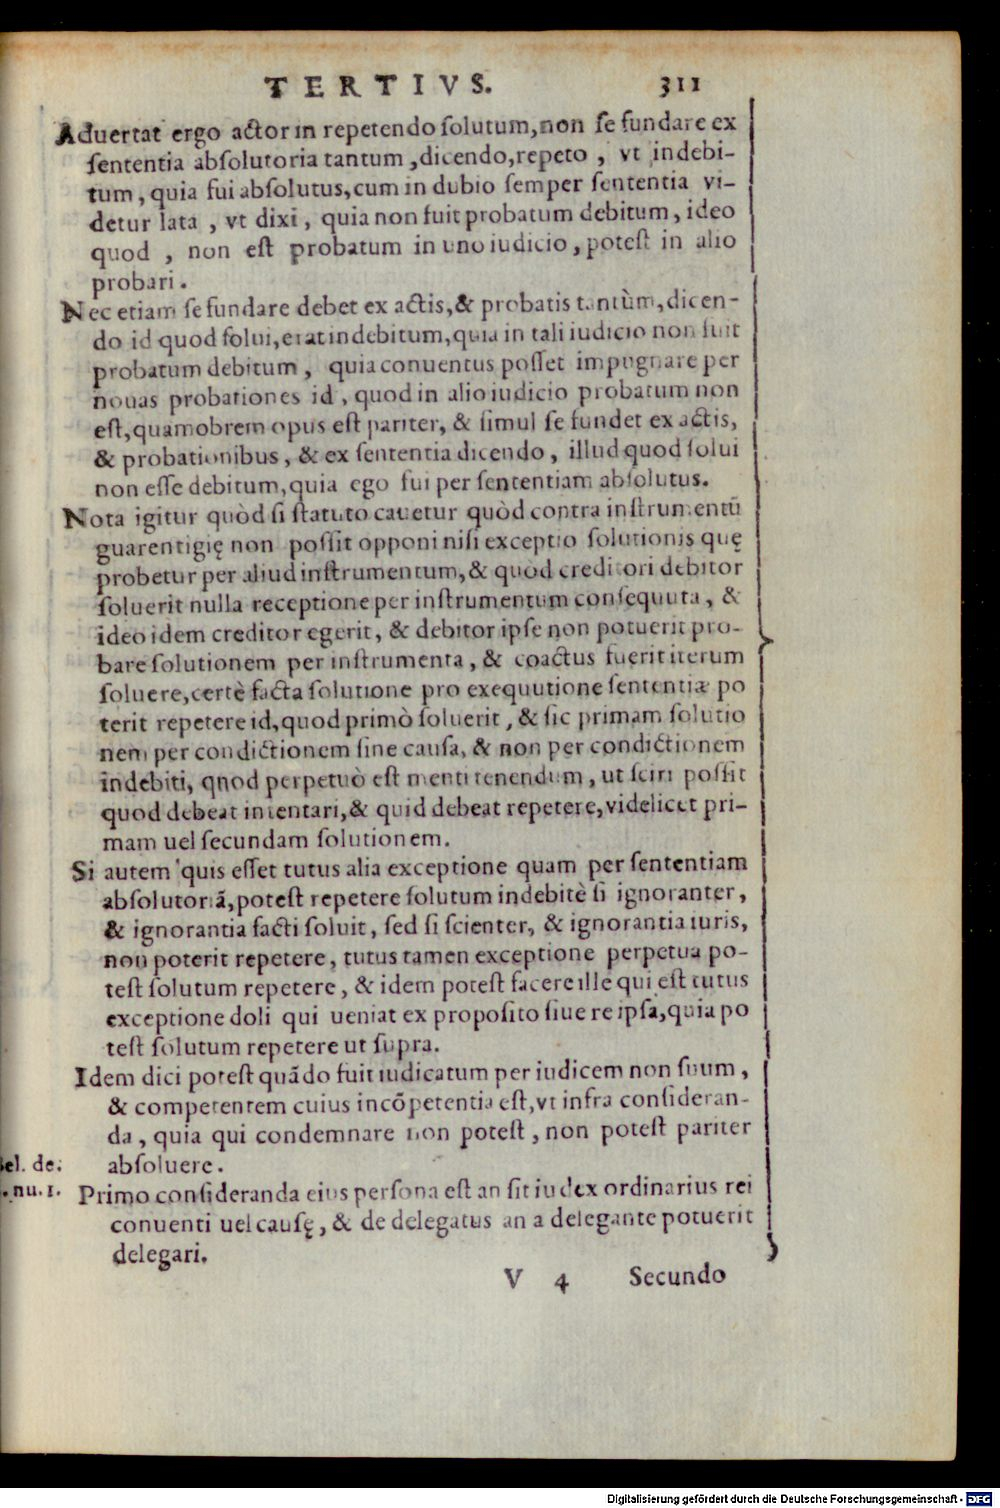 TERTIVS. 311
Aduertat ergo actor in repetendo solutum, non se fundare ex
sententia absolutoria tantum, dicendo, repeto, vt indebi-
tum, quia fui absolutus, cum in dubio semper sententia vi-
detur lata, vt dixi, quia non fuit probatum debitum, ideo
quod, non est probatum in uno iudicio, potest in alio
probari.
Nec etiam se fundare debet ex actis, & probatis tantùm, dicen-
do id quod solui, erat indebitum, quia in tali iudicio non fuit
probatum debitum, quia conuentus posset impugnare per
nouas probationes id, quod in alio iudicio probatum non
est, quamobrem opus est pariter, & simul se fundet ex actis,
& probationibus, & ex sententia dicendo, illud quod solui
non esse debitum, quia ego fui per sententiam absolutus.
Nota igitur quòd si statuto cauetur quòd contra instrumentū
guarentigię non possit opponi nisi exceptio solutionis quę
probetur per aliud instrumentum, & quòd creditori debitor
soluerit nulla receptione per instrumentum consequuta, &
ideo idem creditor egerit, & debitor ipse non potuerit pro-
bare solutionem per instrumenta, & coactus fuerit iterum
soluere, certè facta solutione pro exequutione sententiæ po
terit repetere id, quod primò soluerit, & sic primam solutio
nem per condictionem sine causa, & non per condictionem
indebiti, qnod perpetuò est menti tenendum, ut sciri possit
quod debeat intentari, & quid debeat repetere, videlicet pri-
mam uel secundam solutionem.
Si autem quis esset tutus alia exceptione quam per sententiam
absolutoriā, potest repetere solutum indebitè si ignoranter,
& ignorantia facti soluit, sed si scienter, & ignorantia iuris,
non poterit repetere, tutus tamen exceptione perpetua po-
test solutum repetere, & idem potest facere ille qui est tutus
exceptione doli qui ueniat ex proposito siue re ipsa, quia po
test solutum repetere ut supra.
Idem dici potest quādo fuit iudicatum per iudicem non suum,
& competentem cuius incōpetentia est, vt infra consideran-
da, quia qui condemnare non potest, non potest pariter
absoluere.
el. de.
nu. 1.
Primo consideranda eius persona est an sit iudex ordinarius rei
conuenti uel causę, & de delegatus an a delegante potuerit
delegari.
V 4 Secundo
Digitalisierung gefördert durch die Deutsche Forschungsgemeinschaft - DFG